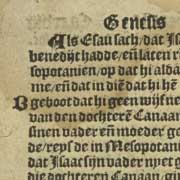 Genesis
Als Esau sach/dat Isaa
benedijct hadde/en̄ laten r
sopotanien/op dat hi aldaͤ
me/en̄ dat in diē dat hi hē
geboot dat hi geen wijf ne
van den dochterē Canaan
sinen vader en̄ moeder go
de/reys de in Mesopotani
dat Isaac sijn vader nyet g
die dochteren Canaan/gin